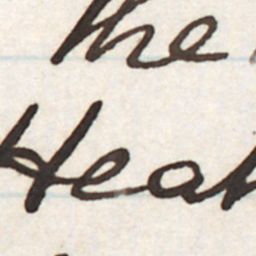 the
Heat